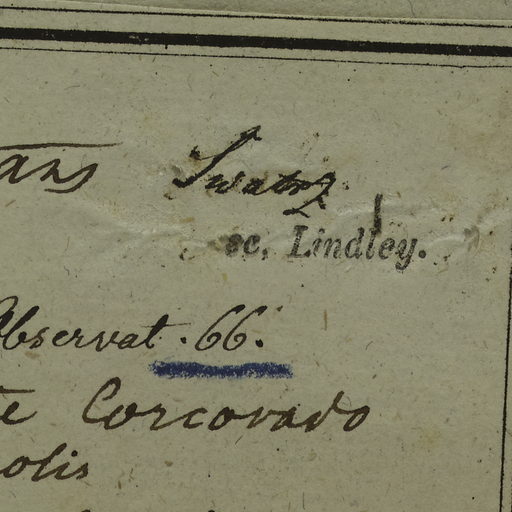 ans Swartz
sc. Lindley.
Observat. 66.
te Corcovado
olis